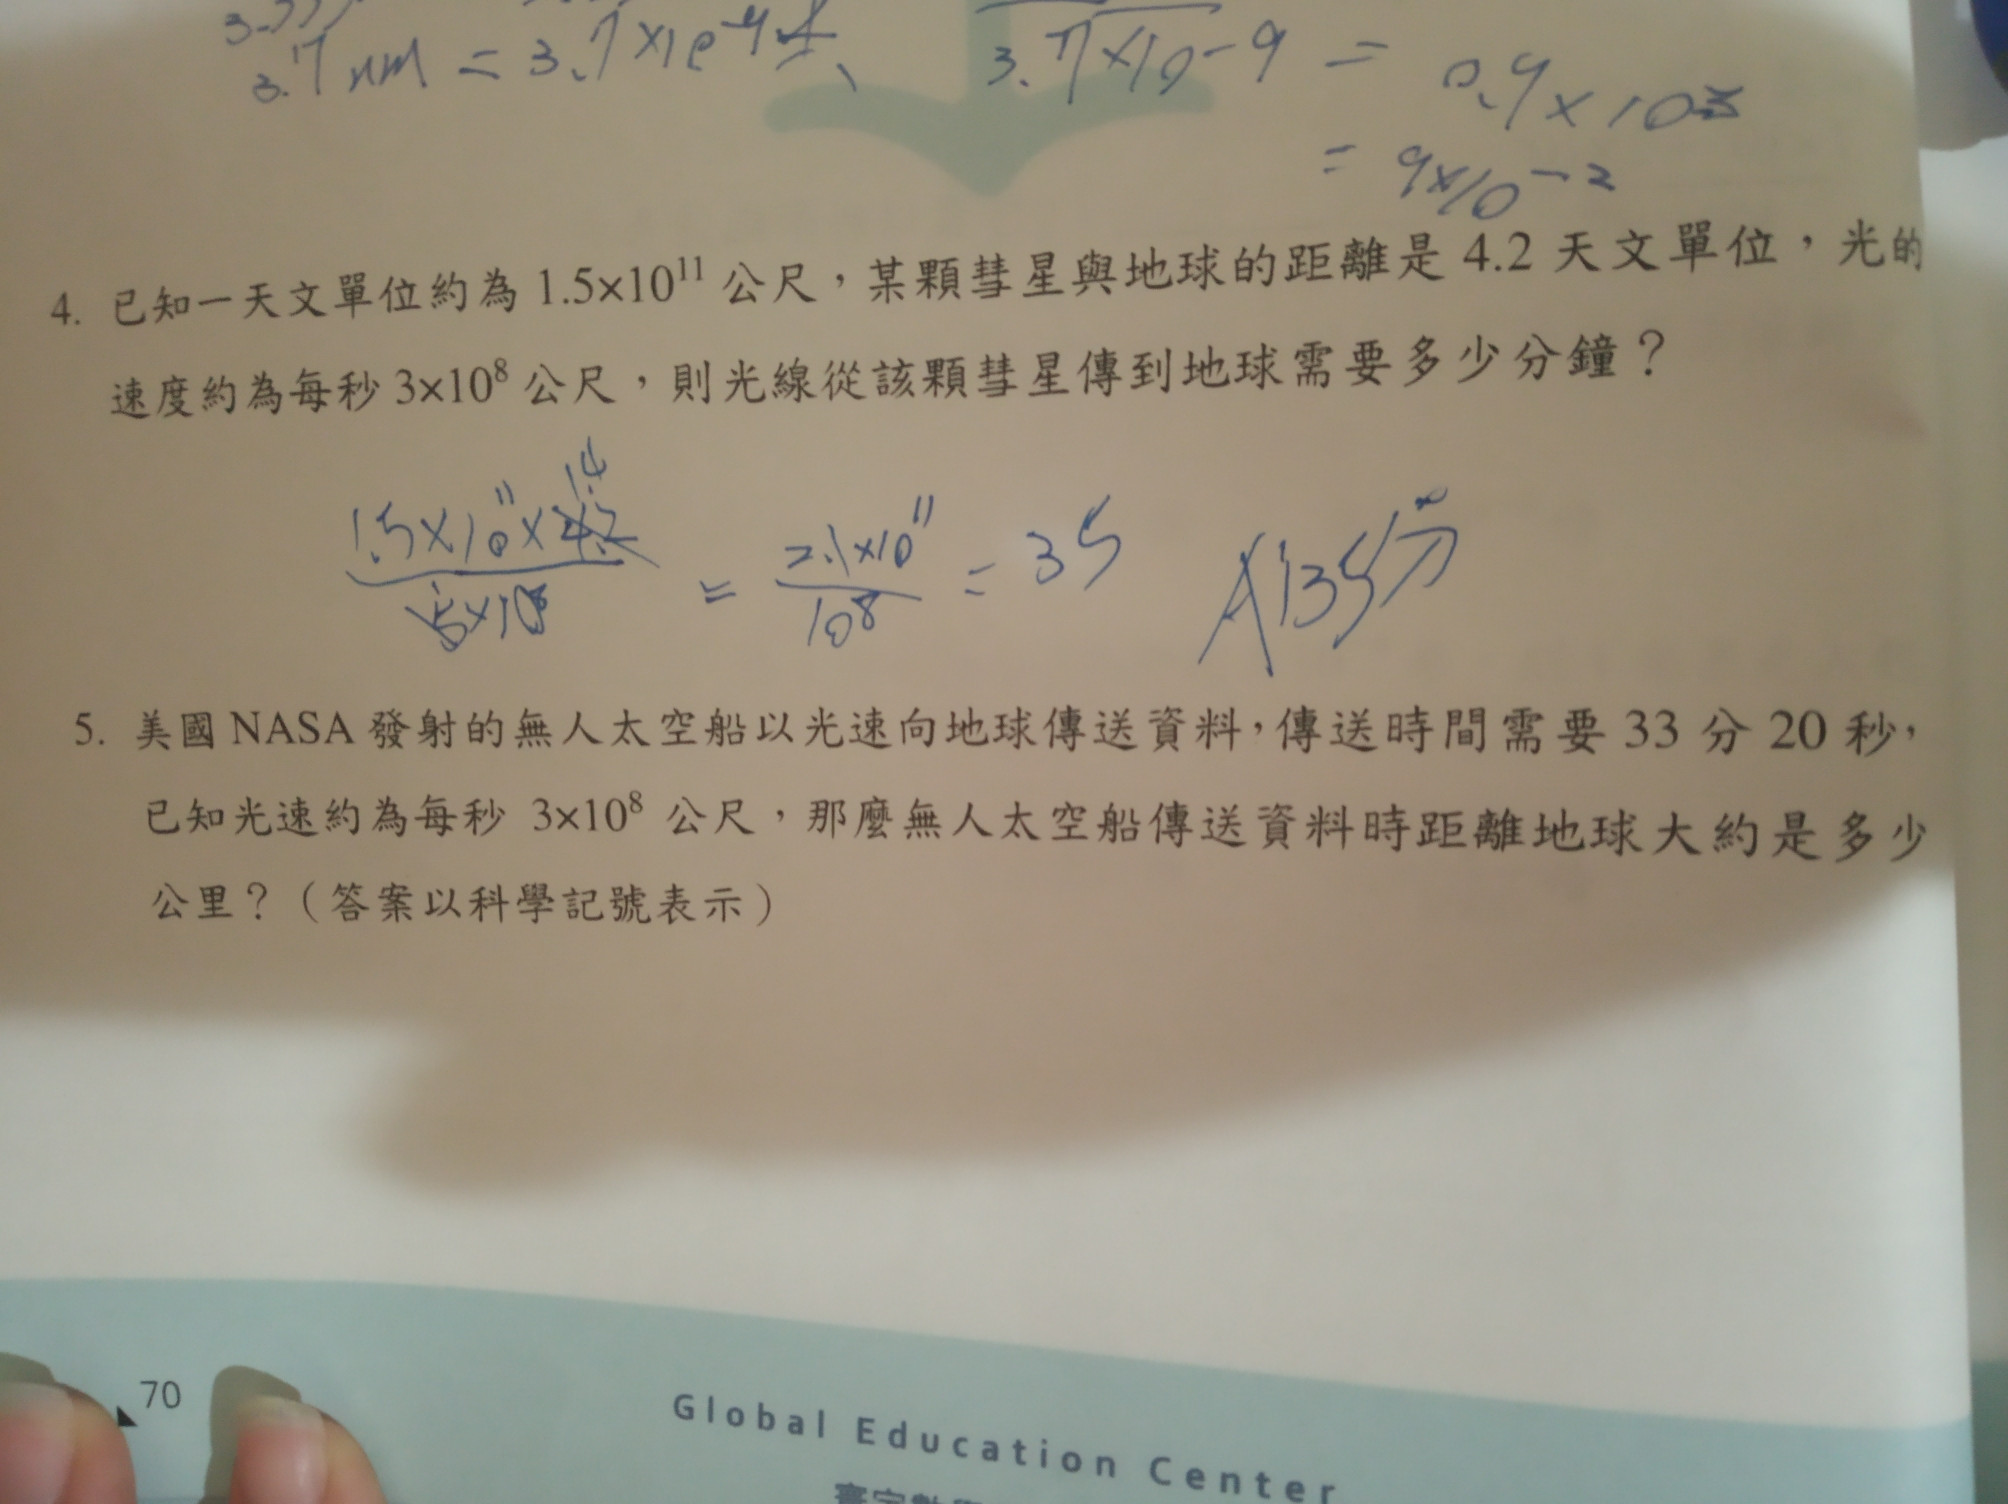 3.7 nm = 3.7×10⁻⁹
3.7×10-9 = 0.9×10
= 9×10⁻²
4. 已知一天文單位約為 1.5×10¹¹ 公尺，某顆彗星與地球的距離是 4.2 天文單位，光的
速度約為每秒 3×10⁸ 公尺，則光線從該顆彗星傳到地球需要多少分鐘？
14
1.5×10¹¹×4.2
3×10⁸
= 2.1×10¹¹
10⁸
= 35
A：35分
5. 美國 NASA 發射的無人太空船以光速向地球傳送資料，傳送時間需要 33 分 20 秒，
已知光速約為每秒 3×10⁸ 公尺，那麼無人太空船傳送資料時距離地球大約是多少
公里？（答案以科學記號表示）
70
Global Education Center